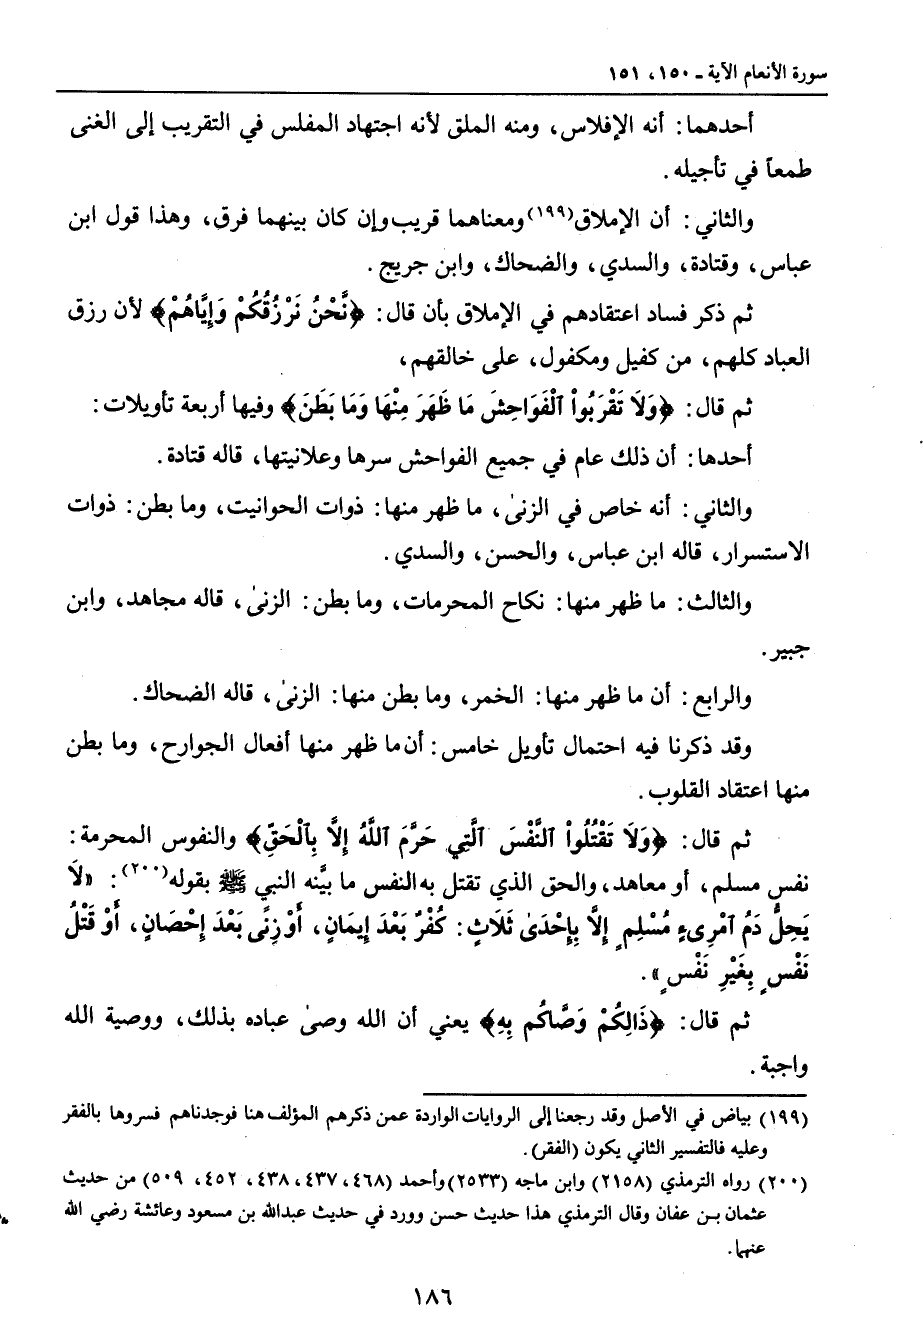 سورة الأنعام الآية ـ ١٥٠، ١٥١
أحدهما: أنه الإفلاس، ومنه الملق لأنه اجتهاد المفلس في التقريب إلى الغنى
طمعاً في تأجيله.
والثاني: أن الإملاق(١٩٩) ومعناهما قريب وإن كان بينهما فرق، وهذا قول ابن
عباس، وقتادة، والسدي، والضحاك، وابن جريج.
ثم ذكر فساد اعتقادهم في الإملاق بأن قال: ﴿نَّحْنُ نَرْزُقُكُمْ وَإِيَّاهُمْ﴾ لأن رزق
العباد كلهم، من كفيل ومكفول، على خالقهم،
ثم قال: ﴿وَلَا تَقْرَبُواْ ٱلْفَوَاحِشَ مَا ظَهَرَ مِنْهَا وَمَا بَطَنَ﴾ وفيها أربعة تأويلات:
أحدها: أن ذلك عام في جميع الفواحش سرها وعلانيتها، قاله قتادة.
والثاني: أنه خاص في الزنىٰ، ما ظهر منها: ذوات الحوانيت، وما بطن: ذوات
الاستسرار، قاله ابن عباس، والحسن، والسدي.
والثالث: ما ظهر منها: نكاح المحرمات، وما بطن: الزنىٰ، قاله مجاهد، وابن
جبير.
والرابع: أن ما ظهر منها: الخمر، وما بطن منها: الزنىٰ، قاله الضحاك.
وقد ذكرنا فيه احتمال تأويل خامس: أن ما ظهر منها أفعال الجوارح، وما بطن
منها اعتقاد القلوب.
ثم قال: ﴿وَلَا تَقْتُلُواْ ٱلنَّفْسَ ٱلَّتِي حَرَّمَ ٱللَّهُ إِلَّا بِٱلْحَقِّ﴾ والنفوس المحرمة:
نفس مسلم، أو معاهد، والحق الذي تقتل به النفس ما بيَّنه النبي ﷺ بقوله(٢٠٠): «لَا
يَحِلُّ دَمُ ٱمْرِىءٍ مُسْلِمٍ إِلَّا بِإِحْدَىٰ ثَلَاثٍ: كُفْرٌ بَعْدَ إِيمَانٍ، أَوْ زِنًى بَعْدَ إِحْصَانٍ، أَوْ قَتْلُ
نَفْسٍ بِغَيْرِ نَفْسٍ».
ثم قال: ﴿ذَالِكُمْ وَصَّاكُم بِهِ﴾ يعني أن الله وصىٰ عباده بذلك، ووصية الله
واجبة.
(١٩٩) بياض في الأصل وقد رجعنا إلى الروايات الواردة عمن ذكرهم المؤلف هنا فوجدناهم فسروها بالفقر
وعليه فالتفسير الثاني يكون (الفقر).
(٢٠٠) رواه الترمذي (٢١٥٨) وابن ماجه (٢٥٣٣) وأحمد (٤٦٨، ٤٣٧، ٤٣٨، ٤٥٢، ٥٠٩) من حديث
عثمان بن عفان وقال الترمذي هذا حديث حسن وورد في حديث عبدالله بن مسعود وعائشة رضي الله
عنهما.
١٨٦